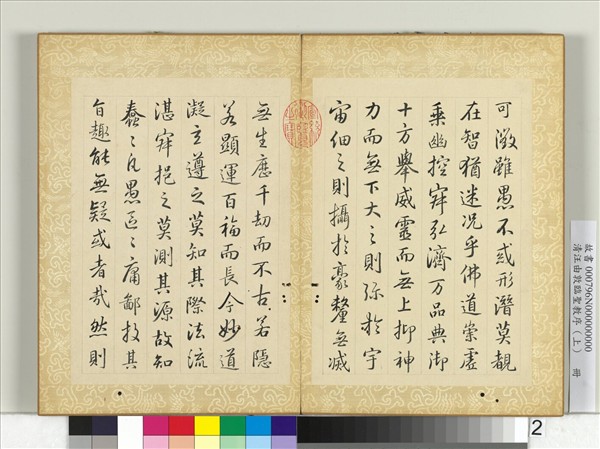 可徵雖愚不惑形潛莫覩
在智猶迷況乎佛道崇虛
乘幽控寂弘濟万品典御
十方舉威靈而無上抑神
力而無下大之則彌於宇
宙細之則攝於豪釐無滅
無生歷千劫而不古若隱
若顯運百福而長今妙道
凝玄遵之莫知其際法流
湛寂挹之莫測其源故知
蠢〻凡愚區〻庸鄙投其
旨趣能無疑或者哉然則
故書 000796N000000000
清汪由敦臨聖教序(上) 冊
2